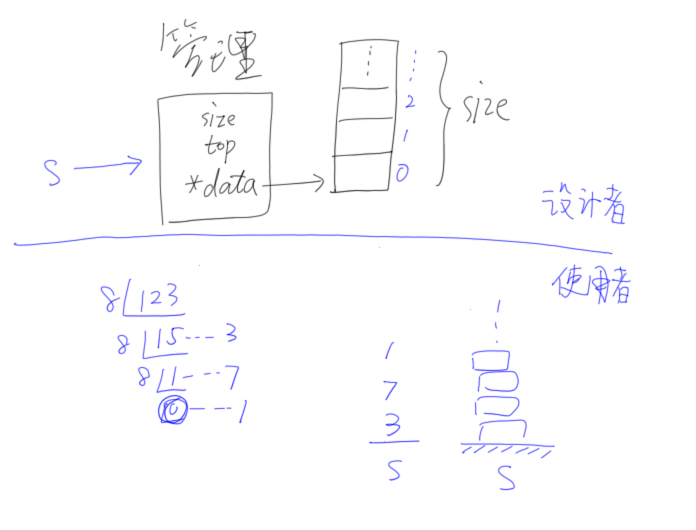 管理
size
top
*data
S
2
1
0
size
设计者
使用者
8 123
8 15 --- 3
8 1 --- 7
0 --- 1
1
7
3
S
S